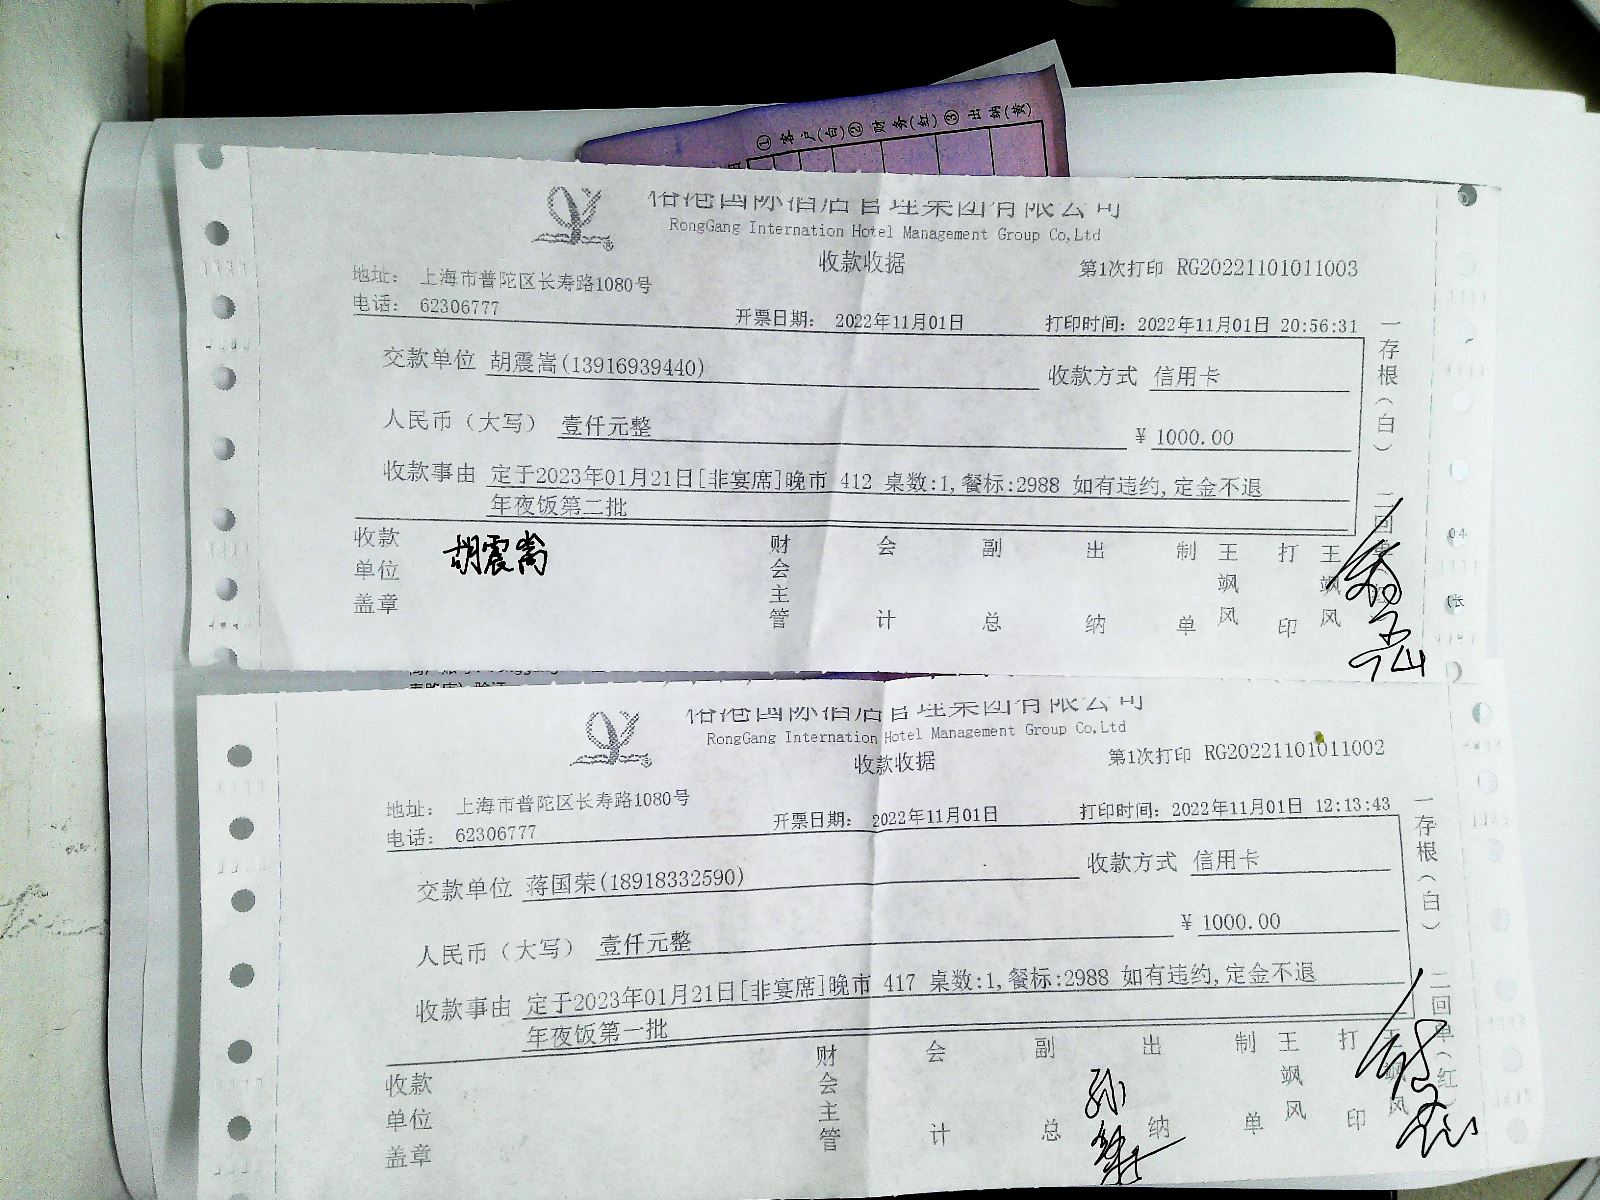 ①客户(白)②财务(红)③出纳(黄)
国际酒店管理集团有限公司
RongGang Internation Hotel Management Group Co,Ltd
收款收据
第1次打印 RG20221101011003
地址: 上海市普陀区长寿路1080号
电话: 62306777
开票日期: 2022年11月01日
打印时间:2022年11月01日 20:56:31
交款单位 胡震嵩(13916939440)
收款方式 信用卡
人民币(大写) 壹仟元整
¥ 1000.00
收款事由 定于2023年01月21日[非宴席]晚市 412 桌数:1,餐标:2988 如有违约,定金不退
年夜饭第二批
收款单位盖章
胡震嵩
财会主管
会计
副总
出纳
制单
王飒风
打印
王飒风
一存根(白)
二回单(红
国际酒店管理集团有限公司
RongGang Internation Hotel Management Group Co,Ltd
收款收据
第1次打印 RG20221101011002
地址: 上海市普陀区长寿路1080号
电话: 62306777
开票日期: 2022年11月01日
打印时间:2022年11月01日 12:13:43
交款单位 蒋国荣(18918332590)
收款方式 信用卡
人民币(大写) 壹仟元整
¥ 1000.00
收款事由 定于2023年01月21日[非宴席]晚市 417 桌数:1,餐标:2988 如有违约,定金不退
年夜饭第一批
收款单位盖章
财会主管
会计
副总
出纳
制单
王飒风
打印
王飒风
一存根(白)
二回单(红